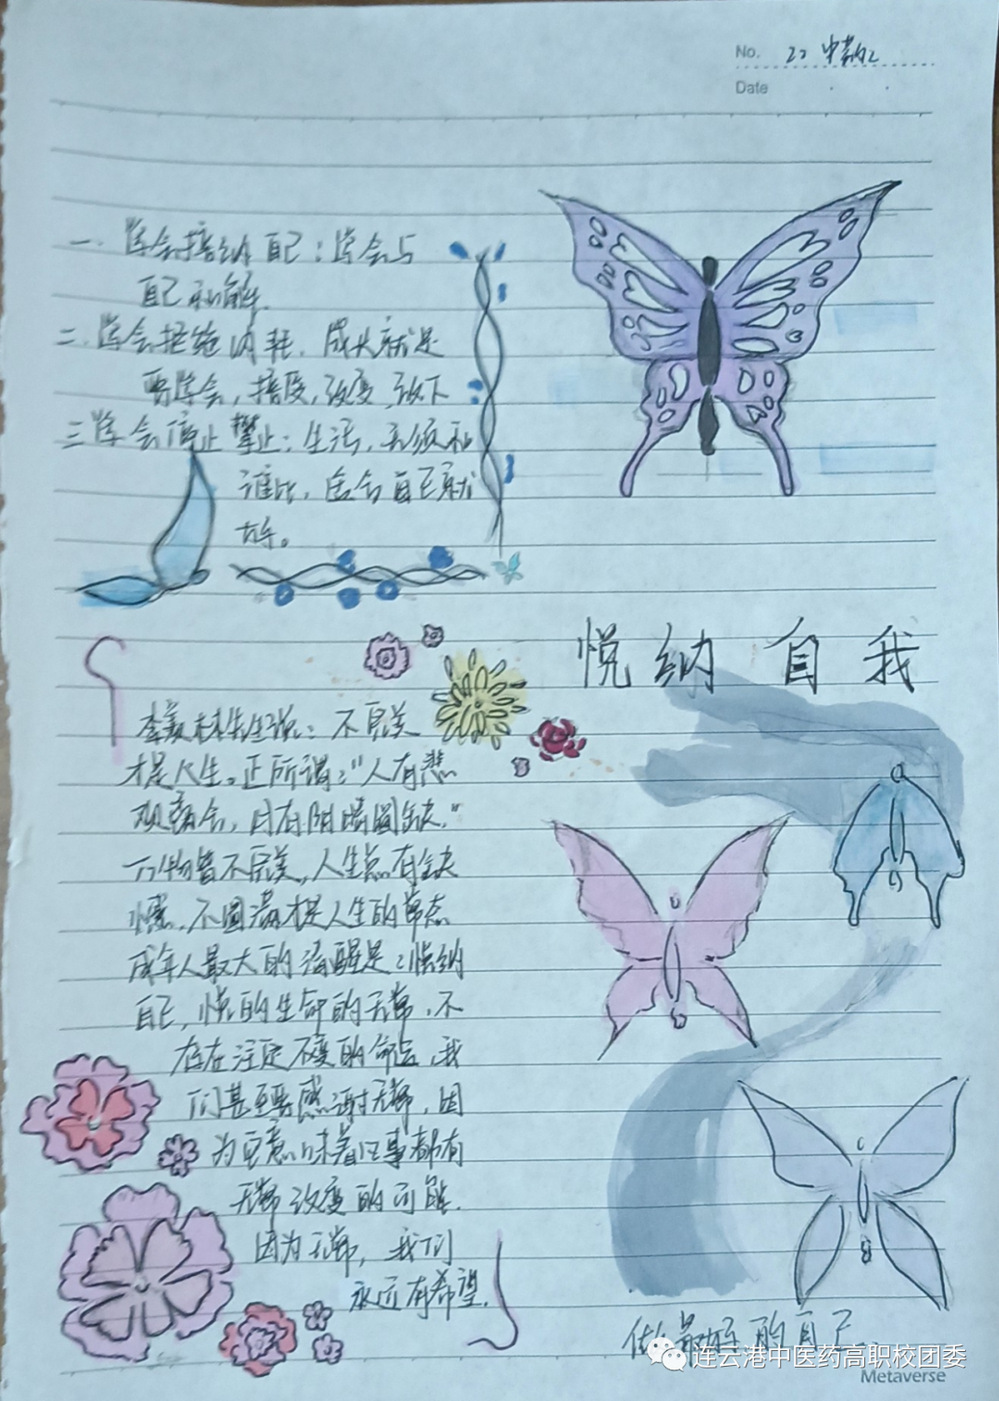 No. 22 中药
Date
一. 学会接纳自己：学会与
自己和解.
二. 学会拒绝内耗. 成长就是
要学会, 接受, 改变, 放下
三学会停止攀止：生活, 无须和
谁比, 适合自己就
好。
悦纳自我
李美林先生说：不完美
才是人生。正所谓："人有悲
欢离合, 月有阴晴圆缺."
万物皆不完美, 人生总有缺
憾, 不圆满才是人生的常态
成年人最大的清醒是：悦纳
自己, 悦的生命的无常, 不
存在注定不变的命运, 我
们甚至要感谢无常, 因
为它意味着凡事都有
无常改变的可能.
因为无常, 我们
永远有希望.
做最好的自己
连云港中医药高职校团委
Metaverse